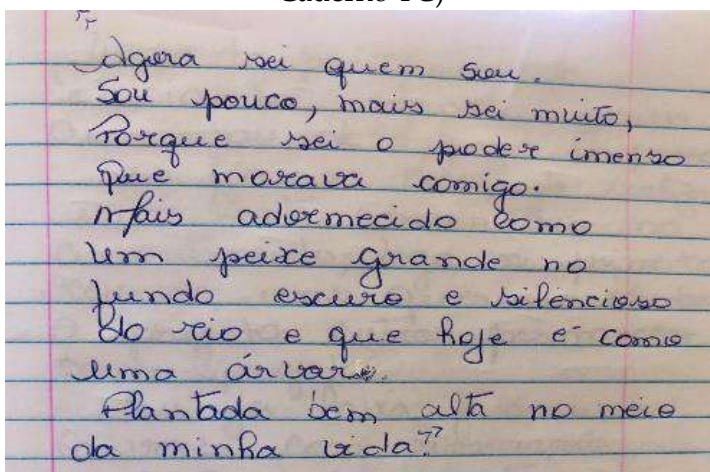 "
Agora sei quem sou.
Sou pouco, mais sei muito,
Porque sei o poder imenso
que morava comigo.
Mais adormecido como
um peixe grande no
fundo escuro e silêncioso
do rio e que hoje é como
uma árvare.
Plantada bem alta no meio
da minha vida"